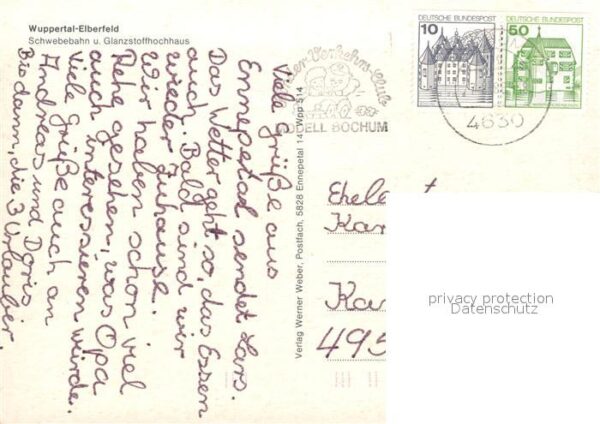 Wuppertal-Elberfeld
Schwebebahn u. Glanzstoffhochhaus
Viele Grüße aus
Ennepetal sendet Lars.
Das Wetter geht so, das Essen
auch. Bald sind wir
wieder zuhause.
Wir haben schon viel
Rehe gesehen, was Opa
auch interessieren würde.
Viele Grüße auch an
Andreas und Doris
Bis dann, die 3 Urlauber.
Verlag Werner Weber, Postfach, 5828 Ennepetal 14 Wpp 514
Verkehrs-Club
MODELL BOCHUM
DEUTSCHE BUNDESPOST
10
DEUTSCHE BUNDESPOST
50
4630
Ehele
Kar
Kar
495
privacy protection
Datenschutz